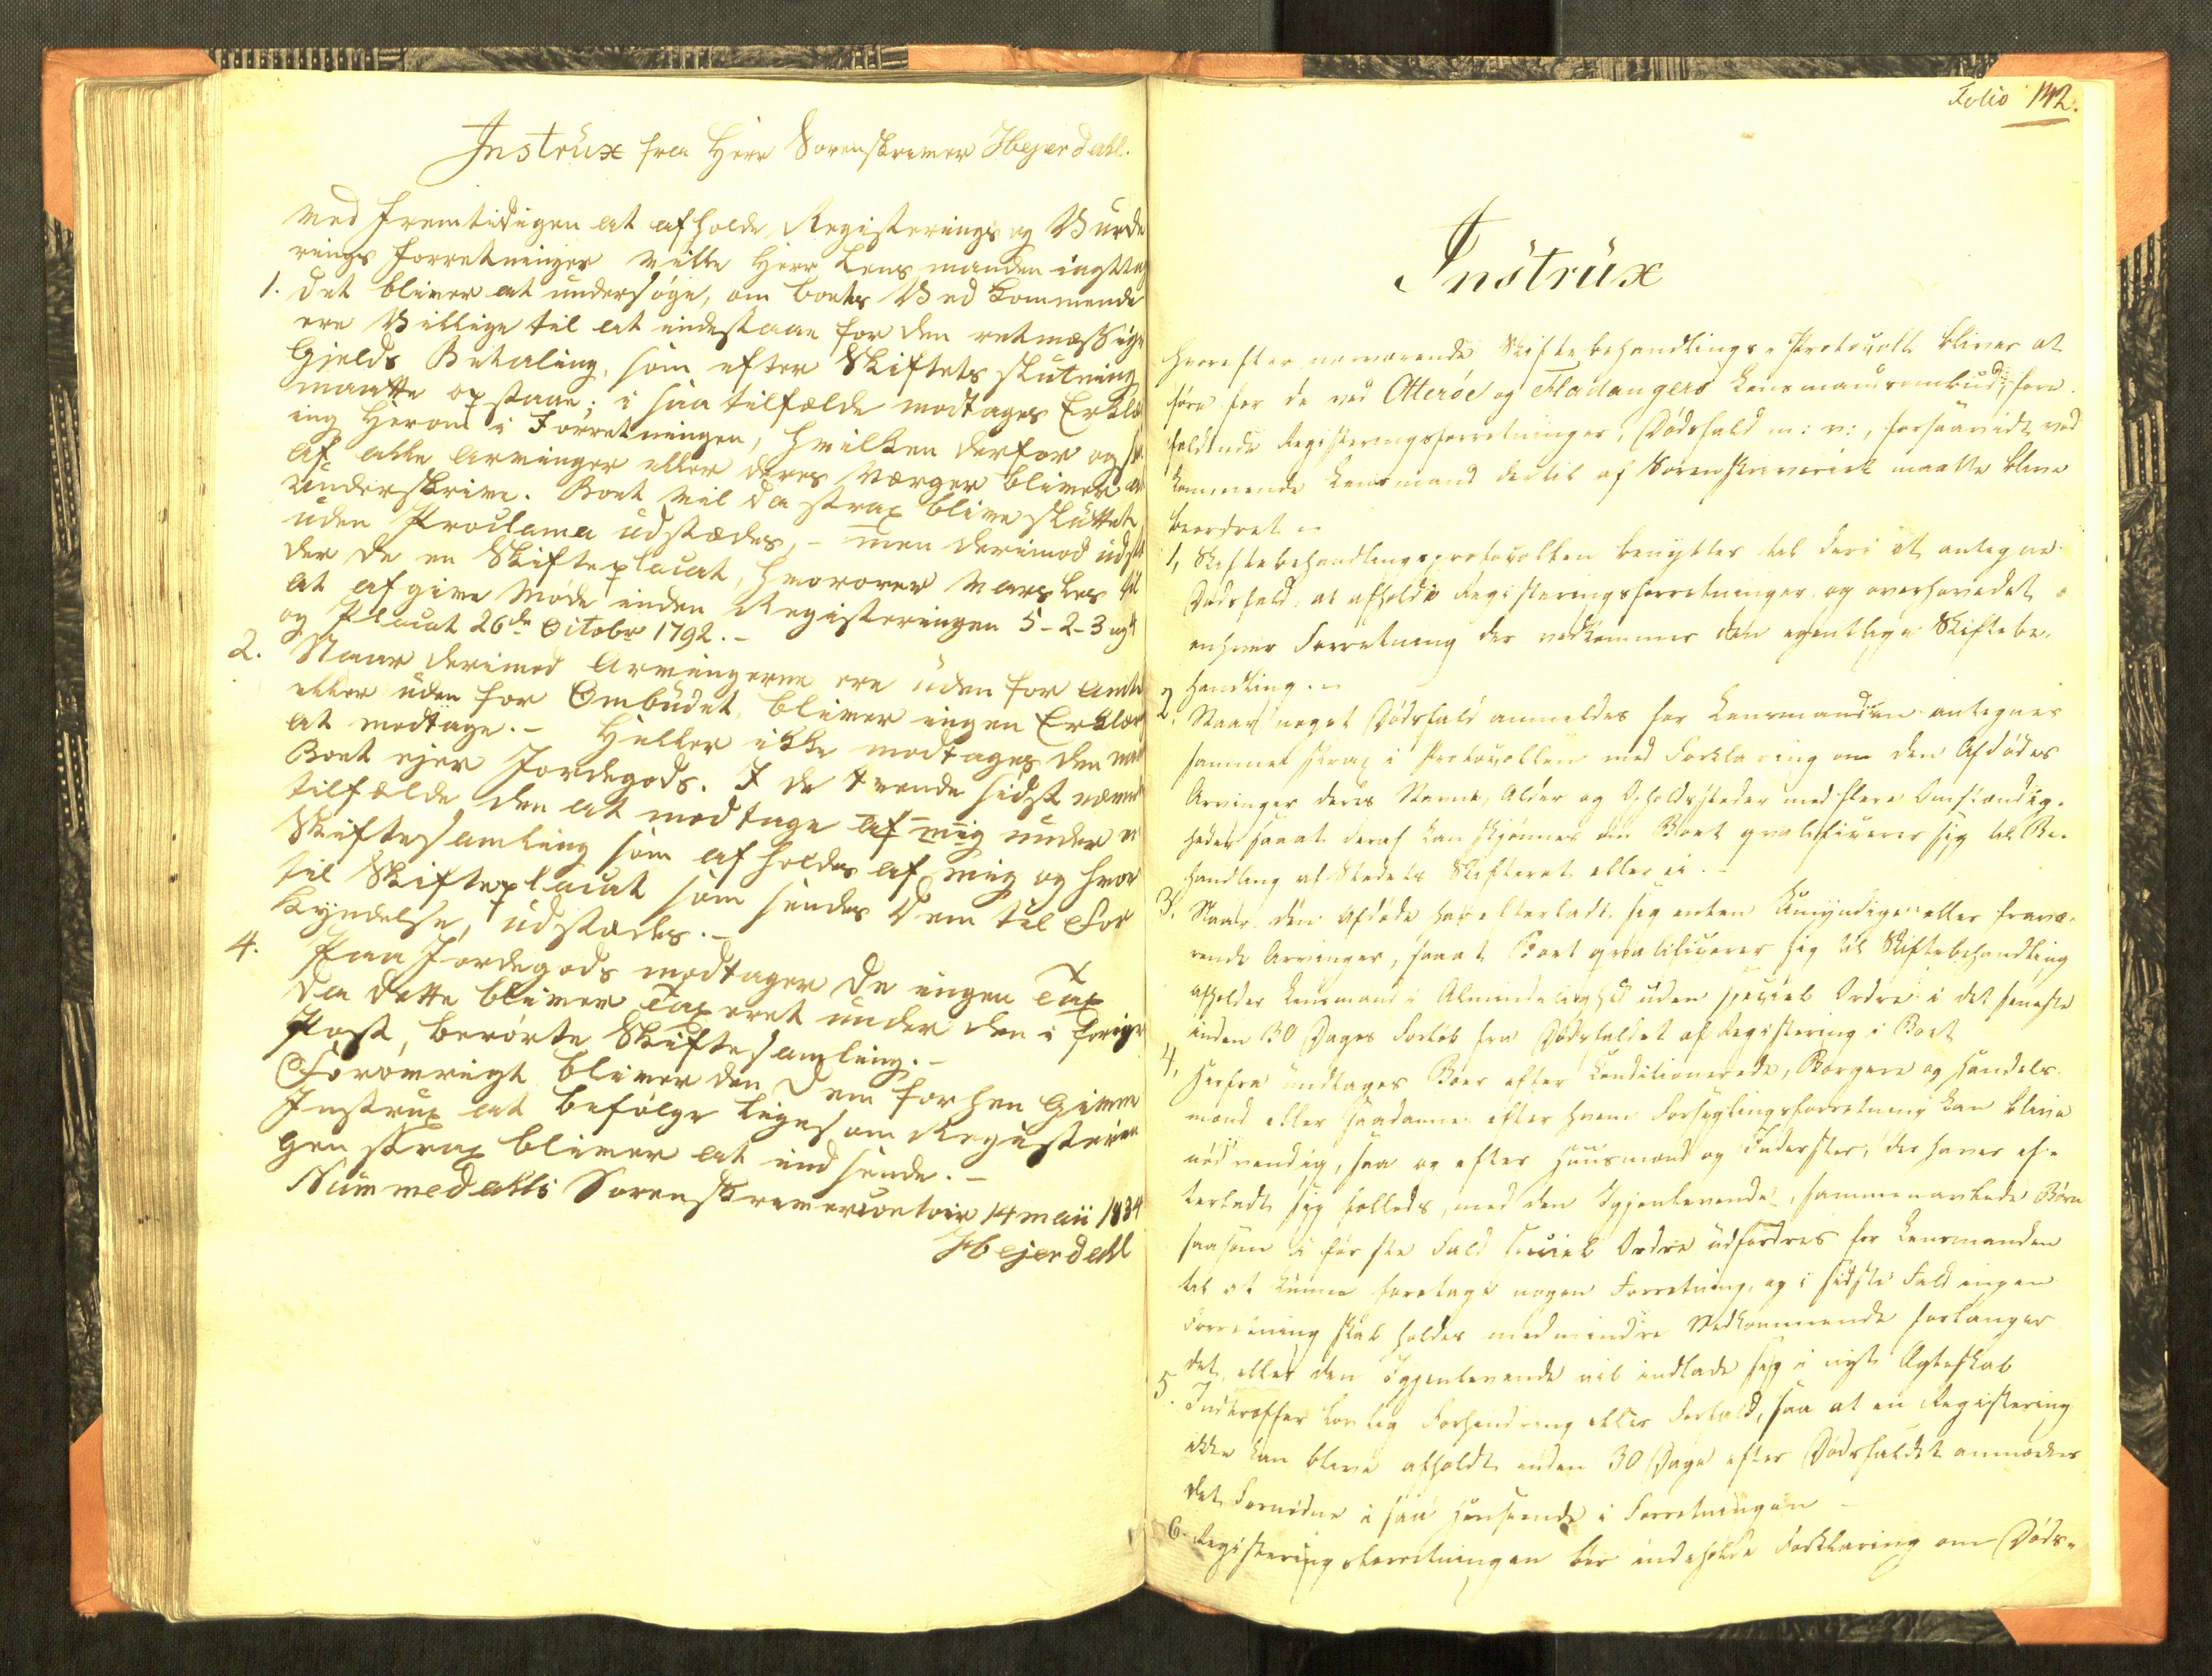 Instrüx fra Herr Sorenskriver Hejerdahl.
Ved fremtidigen at afholde Registerings og Vurde
rings Forretninger ville Herr Lensmanden iagttag
1. Det bliver at undersöge, om boets Vedkommende
ere Villige til at indestaae for den retmæssige
Gjelds Betaling, som efter Skiftets slutning
maatte opstaae; i saa tilfælde modtages Erklæ
ing herom i Forretningen, hvilken derfor og
af alle Arvinger eller deres Værger bliver at
underskrive. Boet vil da strax blive sluttet
uden Proclama udstædes, - men derimod udst
der de en Skifteplacat, hvorover Varsles til
at afgive Møde inden Registeringen 5-2-3 og 4
og Placat 26de Octobr 1792. -
2. Naar derimod Arvingerne ere uden for Amtet
eller uden for Ombudet, bliver ingen Erklær
at modtage. - Heller ikke modtages den naar
Boet ejer Jordegods. I de tvende sidst nævnte
tilfælde den at modtage af mig under en
Skiftesamling som afholdes af mig og hvor
til Skifteplacat som sendes Dem til For
kyndelse, udstædes. -
4. Paa Jordegods modtager De ingen Tax
da dette bliver Taxeret under den i forige
Post, berörte Skiftesamling. -
Foröwrigt bliver den Dem forhen Givne
Instrux at befölge ligesom Registerin
gen strax bliver at indsende. -
Nummedahls Sorenskrivercontoir 14 Maii 1834
Hejerdahl
Folio 142.
Instrüx
hvorefter nærværende Skiftebehandlings-Protocoll bliver at
føre for de ved Otteröe og Fladangers Lensmandsombud, fore-
faldende Registeringsforretninger, Dödsfald m: v:, forsaavidt ved-
kommende Lensmand dertil af Sorenskriveriet maatte blive
beordret.
1, Skiftebehandlingsprotocollen benyttes til deri at antegne
Dödsfald, at afholde Registeringsforretninger og overhovedet
enhver Forretning der vedkommer den egentlige Skiftebe-
handling. -
2, Naar noget Dödsfald anmeldes for Lensmanden antegnes
samme strax i Protocollen med Forklaring om den Afdödes
Arvinger deres Navne, Alder og Opholdssteder med flere Omstændig-
heder saaat deraf kan skjönnes om Boet qvalificerer sig til Be-
handling af Stedets Skifteret eller ei. -
3, Naar den Afdöde har efterladt sig enten Umyndige eller fravæ-
rende Arvinger, saaat Boet qvalificerer sig til Skiftebehandling
afholder Lensmand i Almindelighed uden speciel Ordre i det seneste
inden 30 Dages Forlöb fra Dödsfaldet af Registering i Boet
4, Herfra undtages Boer efter Conditionerede, Borgere og Handels-
mænd eller saadanne efter hvem Forseglingsforretning kan blive
nödvendig, saa og efter Huusmænd og Inderster, der haver ef-
terladt sig fælleds, med den Igjenlevende, sammenavlede Börn
saasom i förste Fald speciel Ordre udfordres for Lensmanden
til at kunne foretage nogen Forretning, og i sidste Fald ingen
Forretning skal holdes med mindre Vedkommende forlanger
det, eller den Igjenlevende vil indlade sig i nyt Ægteskab
5. Indtræffer lovlig Forhindring eller Forfald, saa at en Registering
ikke kan blive afholdt inden 30 Dage efter Dödsfaldet anmærkes
det Fornödne i saa Henseende i Forretningen -
6. Registeringsforretningen bör indeholde Forklaring om Döds-